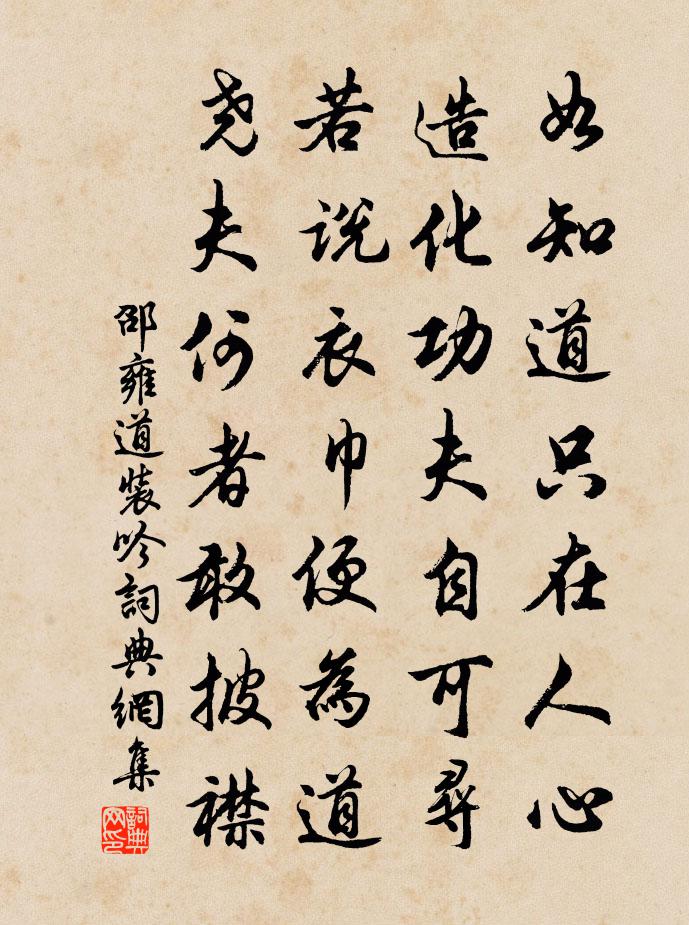 如知道只在人心
造化功夫自可尋
若説衣巾便為道
尧夫何者敢披襟
邵雍道装吟詞典網集
詞典网印